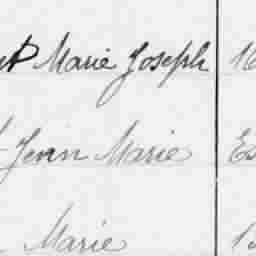 Marie Joseph 16
Jean Marie Es
Marie